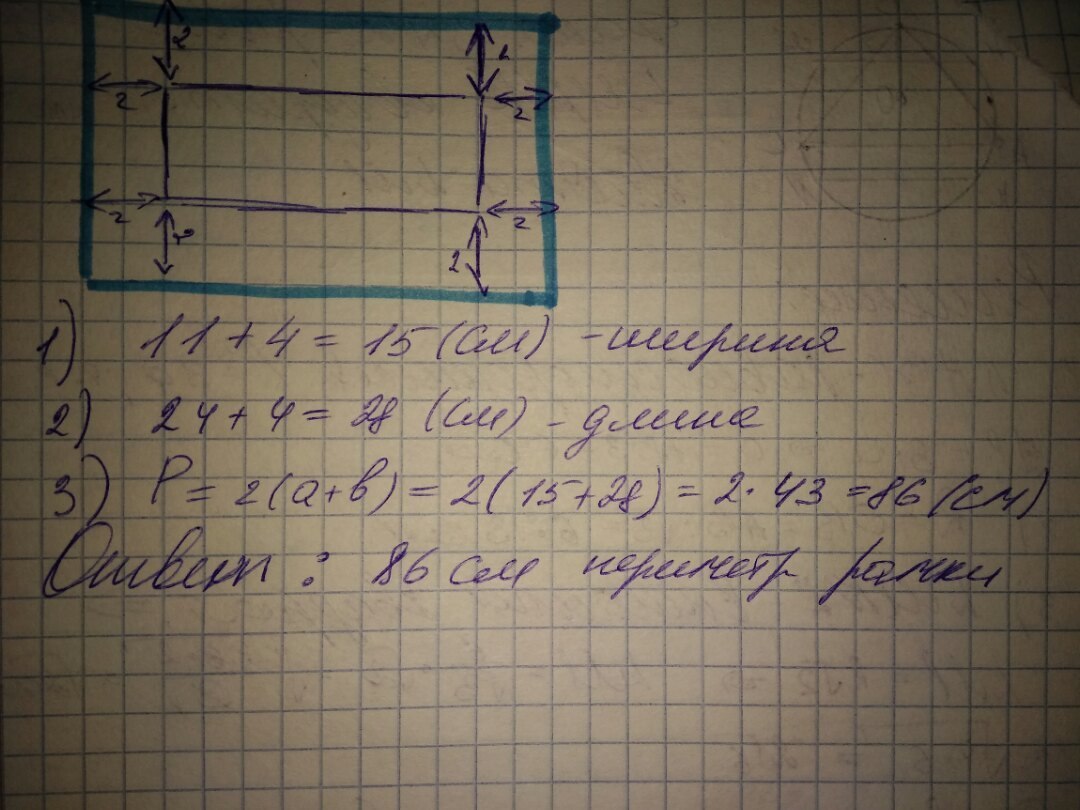 2 2
2 2
2 2
2 2
1) 11+4=15(см) -ширина
2) 24+4=28 (см) - длина
3) P=2(a+b)=2(15+28)=2·43=86(см)
Ответ: 86 см периметр рамки